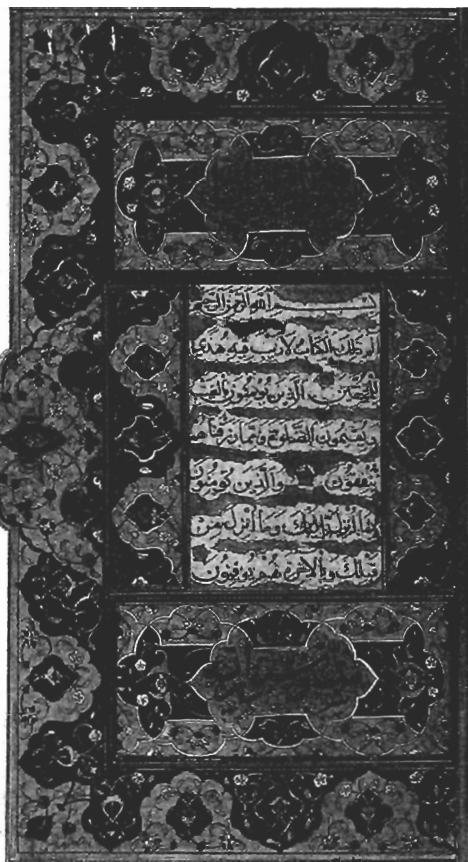 بسم الله الرحمن الرحيم
الم ذلك الكتاب لا ريب فيه هدى
للمتقين الذين يؤمنون بالغيب
ويقيمون الصلوة ومما رزقناهم
ينفقون والذين يؤمنون
بما أنزل إليك وما أنزل من
قبلك وبالآخرة هم يوقنون